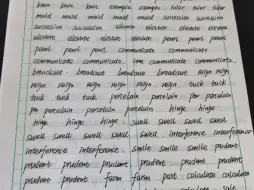 knee knee knee example ruler ruler ruler
mald mald mald mald succession succession
succession succession elevate elevate elevate
elevate elevate elevate pearl pearl pearl
pearl pearl pearl communicate communicate
communicate communicate communicate
broadcast broadcast broadcast broadcast reign
reign reign reign reign reign tuck tuck
tuck tuck tuck porcelain porcelain porcelain
porcelain porcelain porcelain hinge hinge
hinge hinge hinge swell swell
swell swell swell swell interference
interference interference smile smile prudent
prudent prudent prudent prudent prudent
prudent prudent farm farm past calculate calculate